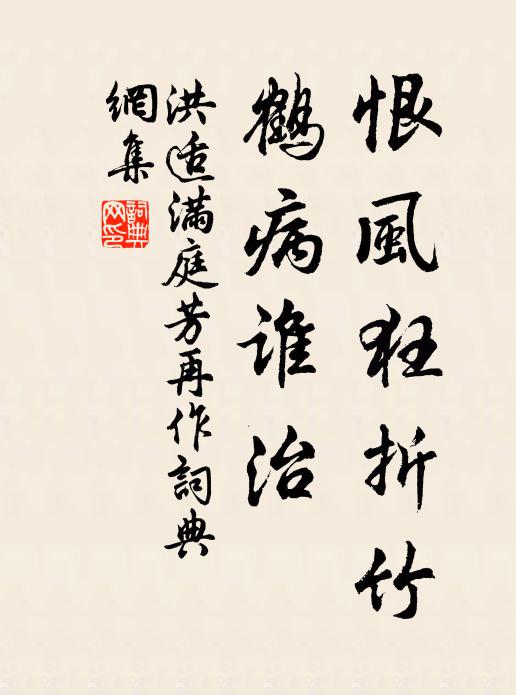 恨風狂折竹
鶴病谁治
洪适满庭芳再作詞典
網集
詞典
网印